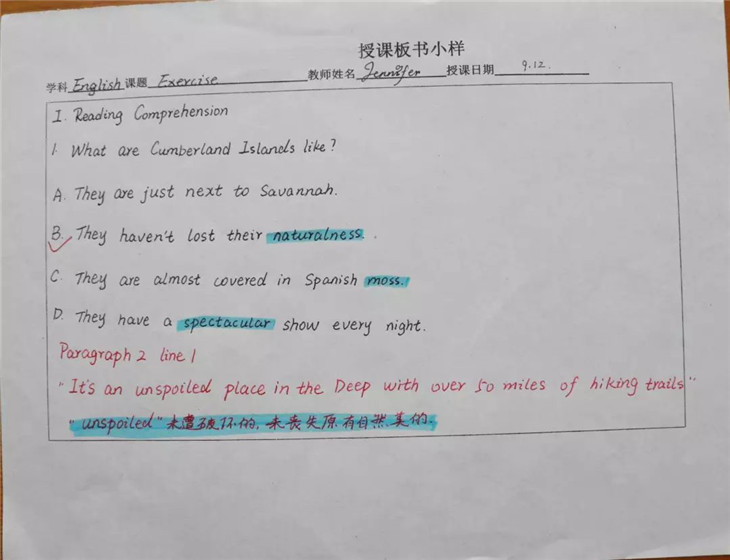 授课板书小样
学科 English 课题 Exercise 教师姓名 Jennifer 授课日期 9.12.
I. Reading Comprehension
1. What are Cumberland Islands like?
A. They are just next to Savannah.
B. They haven't lost their naturalness.
C. They are almost covered in Spanish moss.
D. They have a spectacular show every night.
Paragraph 2 line 1
"It's an unspoiled place in the Deep with over 50 miles of hiking trails"
"unspoiled" 未遭破坏的, 未丧失原有自然美的.